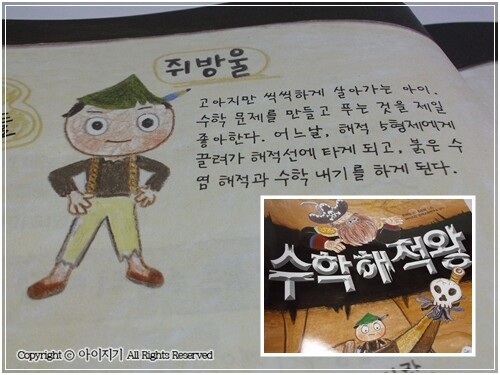 쥐방울
고아지만 씩씩하게 살아가는 아이.
수학 문제를 만들고 푸는 것을 제일
좋아한다. 어느날, 해적 5형제에게
끌려가 해적선에 타게 되고, 붉은 수
염 해적과 수학 내기를 하게 된다.
수학해적왕
Copyright ⓒ 아이지기 All Rights Reserved